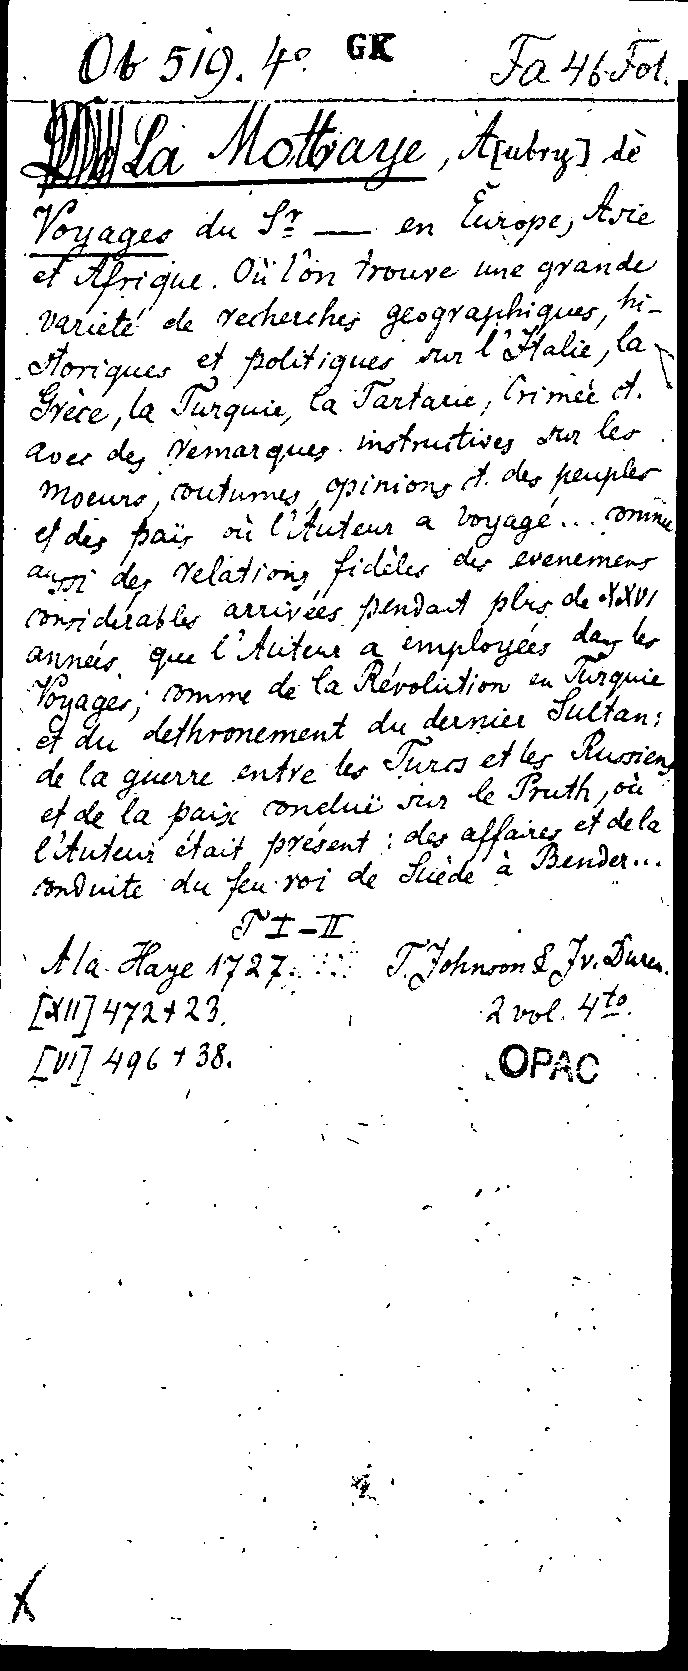 Ob 519. 4° GK Fa 46 Fol.
La Mottraye, A[ubry] de
Voyages du Sr — en Europe, Asie
et Afrique. Où l'on trouve une grande
varieté de recherches geographiques, hi-
storiques et politiques sur l'Italie, la
Grèce, la Turquie, la Tartarie, Crimée et.
avec des remarques instructives sur les
moeurs, coutumes, opinions et. des peuples
et des païs où l'Auteur a voyagé... comme
aussi des relations fidèles des evenemens
considerables arrivées pendant plus de XXVI
années que l'Auteur a employées dans les
Voyages; comme de la Révolution en Turquie
et du dethronement du dernier Sultan:
de la guerre entre les Turcs et les Russiens
et de la paix concluë sur le Pruth, où
l'Auteur était présent: des affaires et de la
conduite du feu roi de Suède à Bender...
T I-II
A la Haye 1727. T. Johnson & J v. Duren.
[XII] 472 + 23. 2 vol. 4to.
[VI] 496 + 38. OPAC